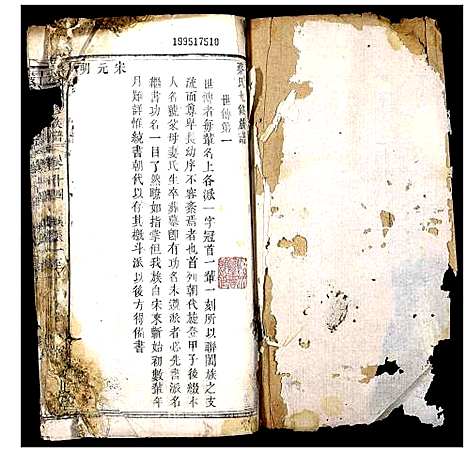 199517510
宋元明
氏 修族譜
世傳第一
世傳者每輩名上各派一字冠首一輩一刻所以聯闔族之支
疏而尊卑長幼序不容紊焉者也首列朝代旋登甲子後綴本
人名號父母妻氏生卒葬墓即有功名未遵派者必先書派名
繼書功名一目了然瞭如指掌但我族自宋來新始初數輩年
月難詳惟統書朝代以存其概斗派以後方得備書